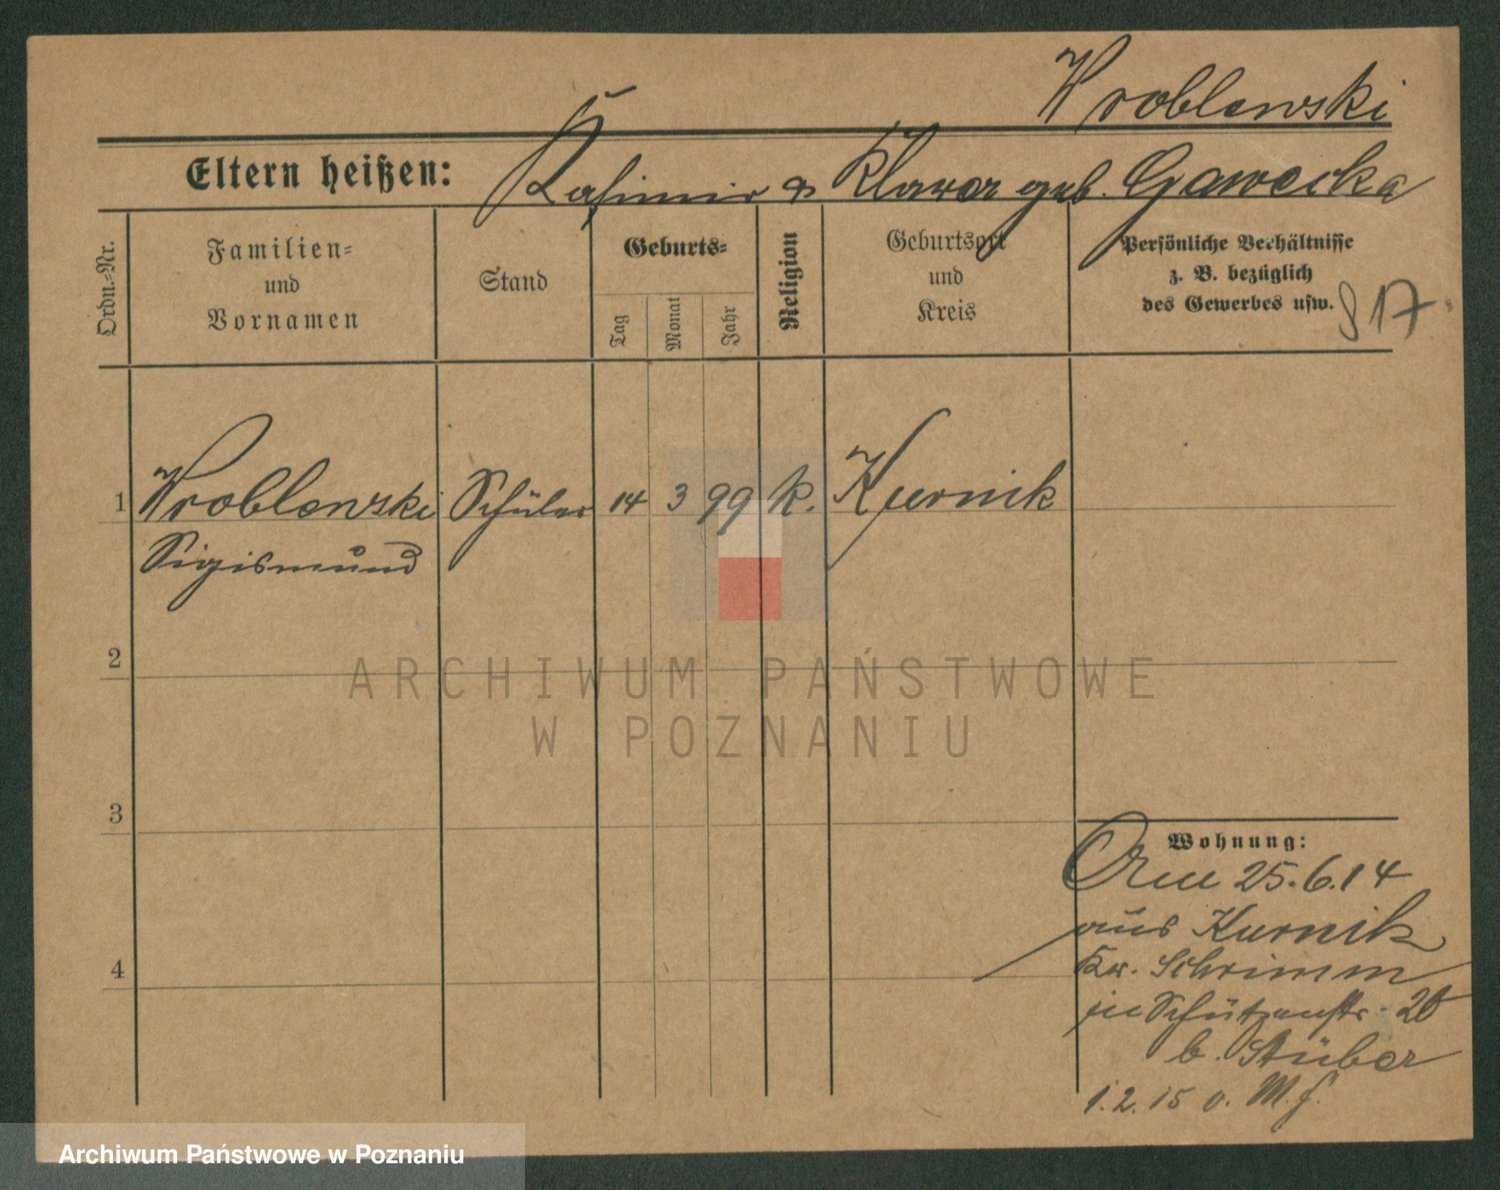 Wroblewski
Eltern heißen: Kasimir & Klara geb. Gawecka
Ordn.-Nr.
Familien-
und
Vornamen
Stand
Geburts-
Tag
Monat
Jahr
Religion
Geburtsort
und
Kreis
Persönliche Verhältnisse
z. B. bezüglich
des Gewerbes usw.
817
1 Wroblewski Schüler 14 3 99 k. Kurnik
Sigismund
2
ARCHIWUM PAŃSTWOWE
W POZNANIU
3
Wohnung:
Am 25.6.14
aus Kurnik
4
Kr. Schrimm
in Schützenstr. 20
b. Stüber
1.2.15 o. M. f.
Archiwum Państwowe w Poznaniu